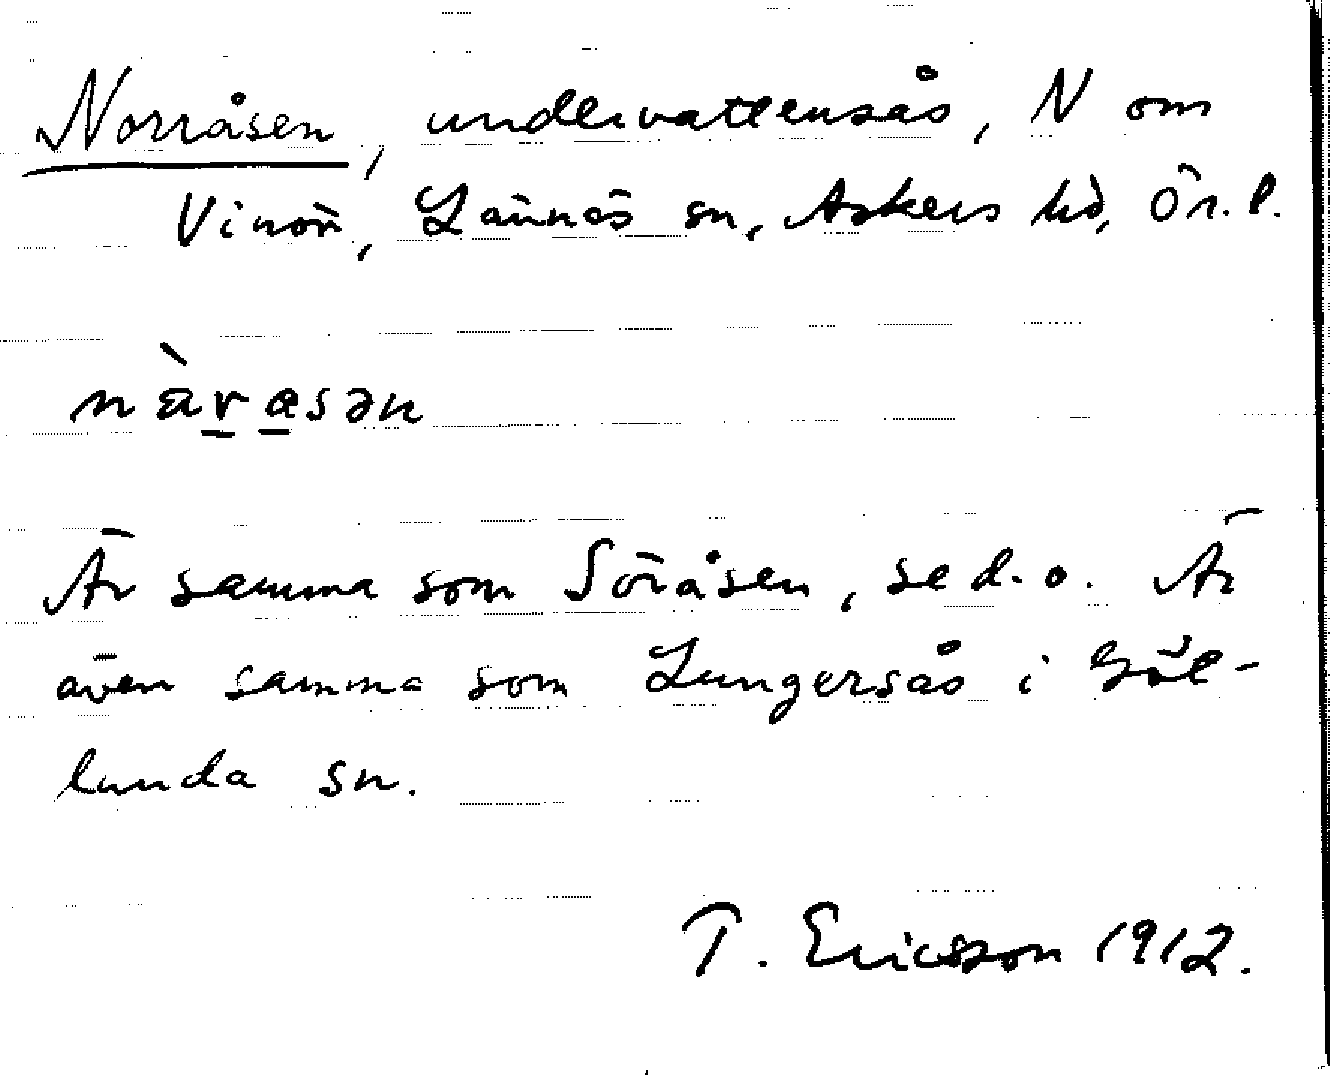 Norråsen, undervattensås, N om
Vinön, Lännäs sn, Askers hd, Ör. l.
nàrasən
Är samma som Söråsen, se d. o. Är
även samma som Lungersås i Göl-
lunda sn.
T. Ericsson 1912.